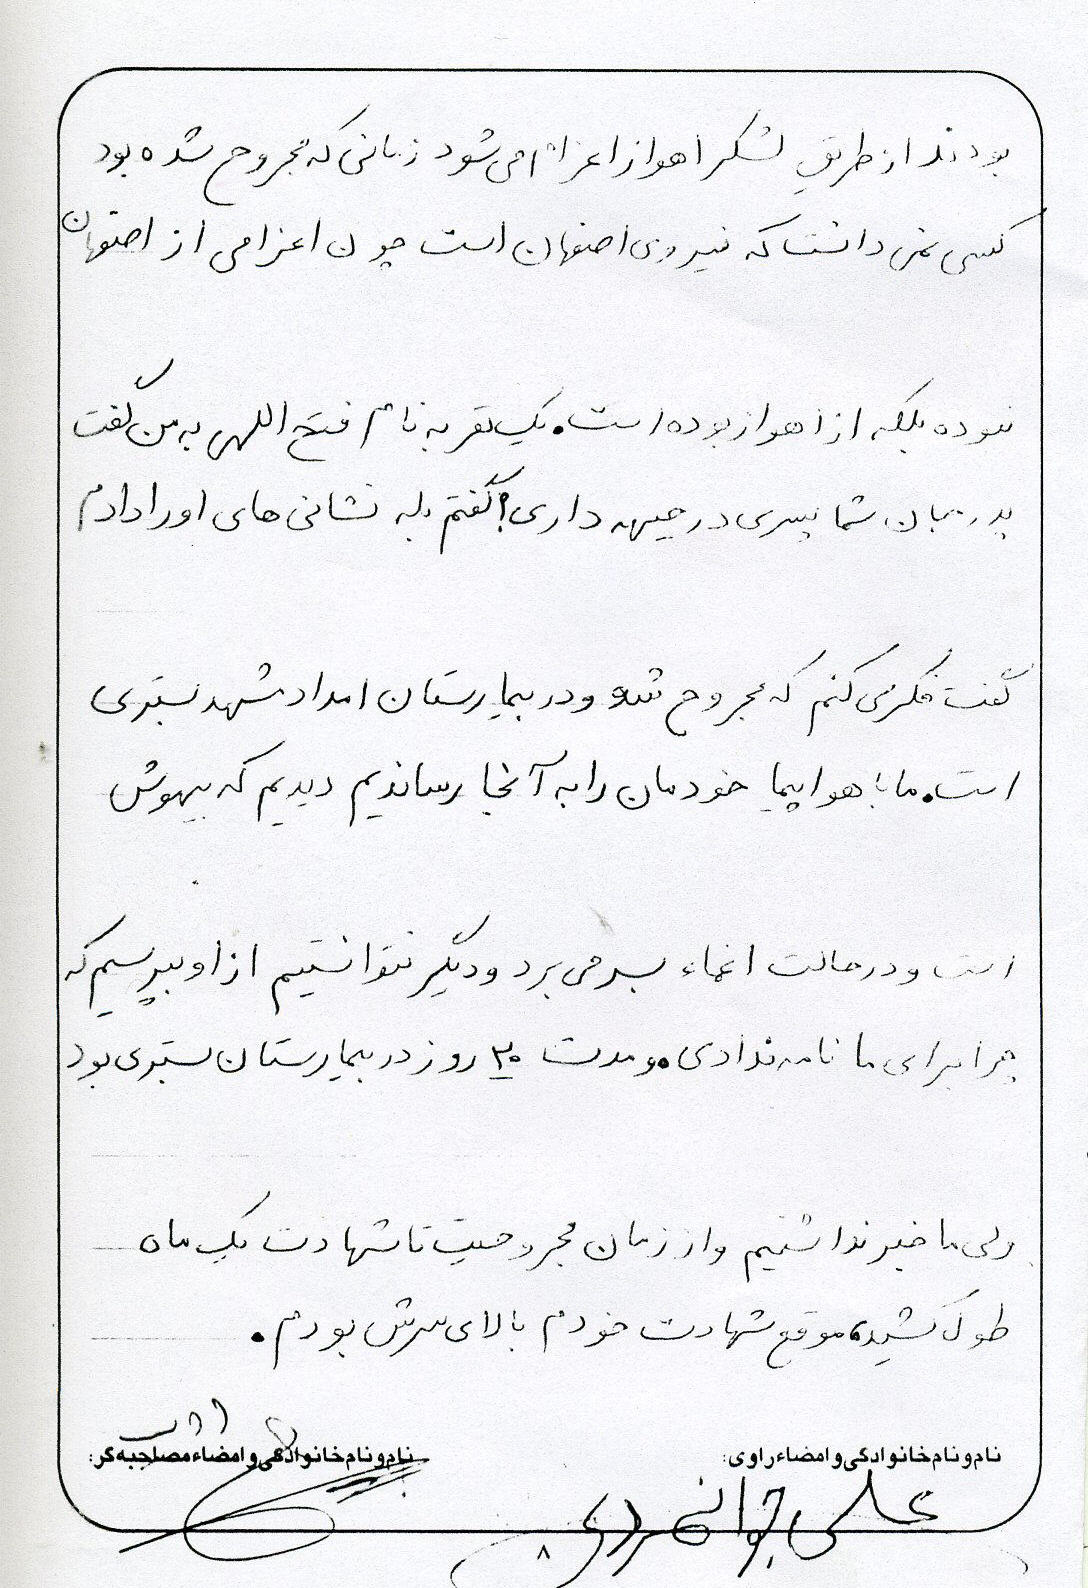 بودند از طریق لشکر اهواز اعزام می شود زمانی که مجروح شده بود
کسی نمی دانست که نیروی اصفهان است چون اعزامی از اصفهان
نبوده بلکه از اهواز بوده است. یک نفر به نام فتح اللهی به من گفت
پدرجان شما پسری در جبهه داری؟ گفتم بله نشانی های او را دادم
گفت فکر می کنم که مجروح شده و در بیمارستان امداد مشهد بستری
است. ما با هواپیما خودمان را به آنجا رساندیم دیدیم که بیهوش
است و در حالت اغماء بسر می برد و دیگر نتوانستیم از او بپرسیم که
چرا برای ما نامه ندادی. و مدت ۲۰ روز در بیمارستان بستری بود
ولی ما خبر نداشتیم و از زمان مجروحیت تا شهادت یک ماه
طول کشید، موقع شهادت خودم بالای سرش بودم.
نام و نام خانوادگی و امضاء راوی: نام و نام خانوادگی و امضاء مصاحبه گر:
علی جوانمردی
۸